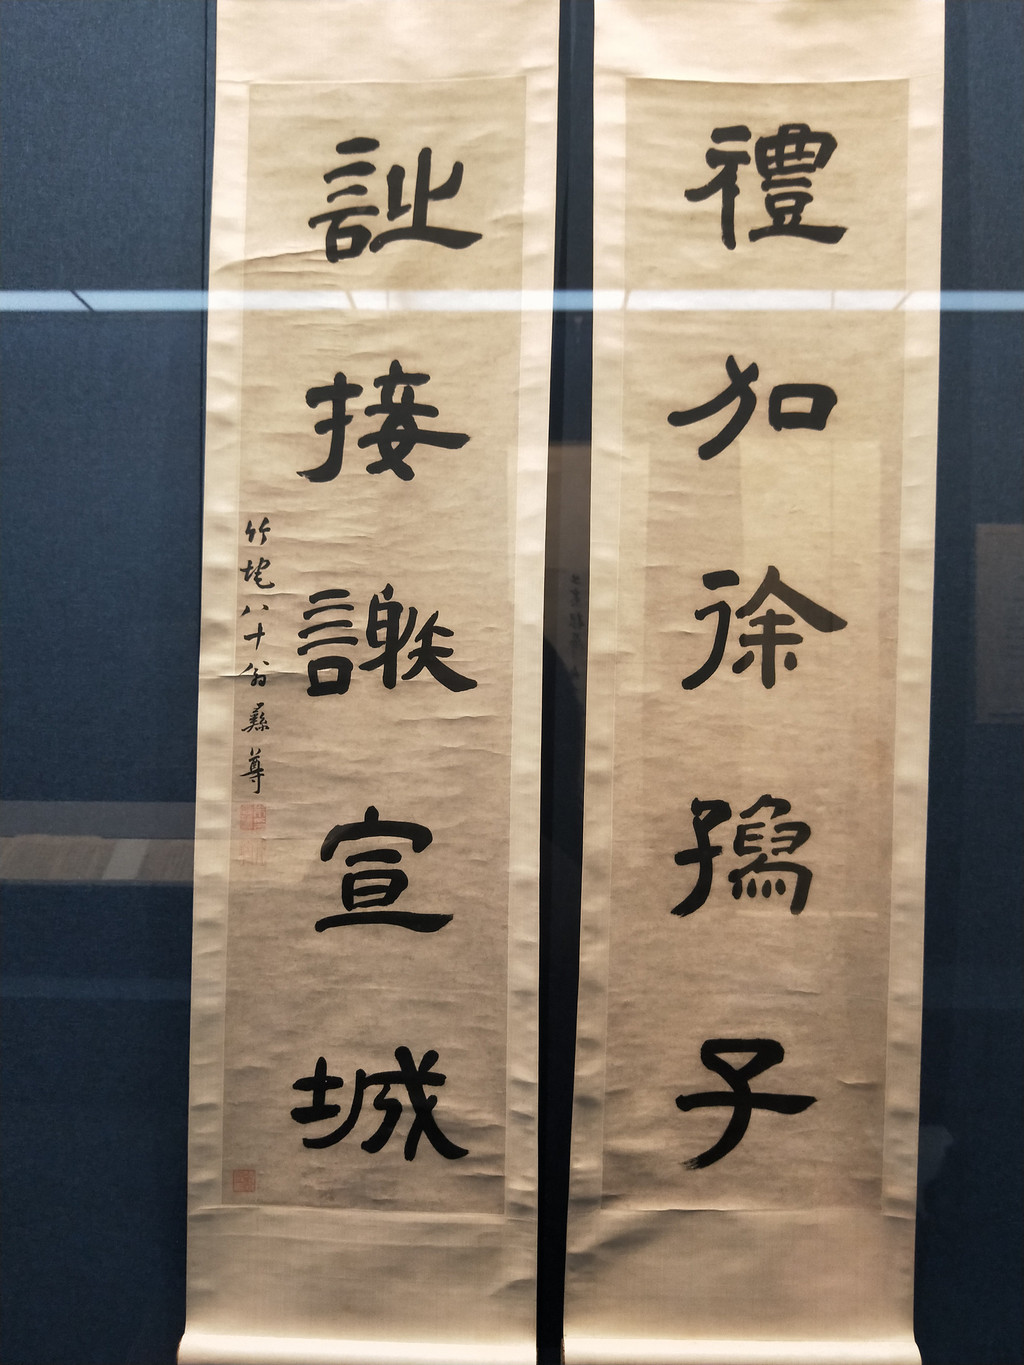 禮加徐孺子
詩接謝宣城
竹垞八十翁彝尊